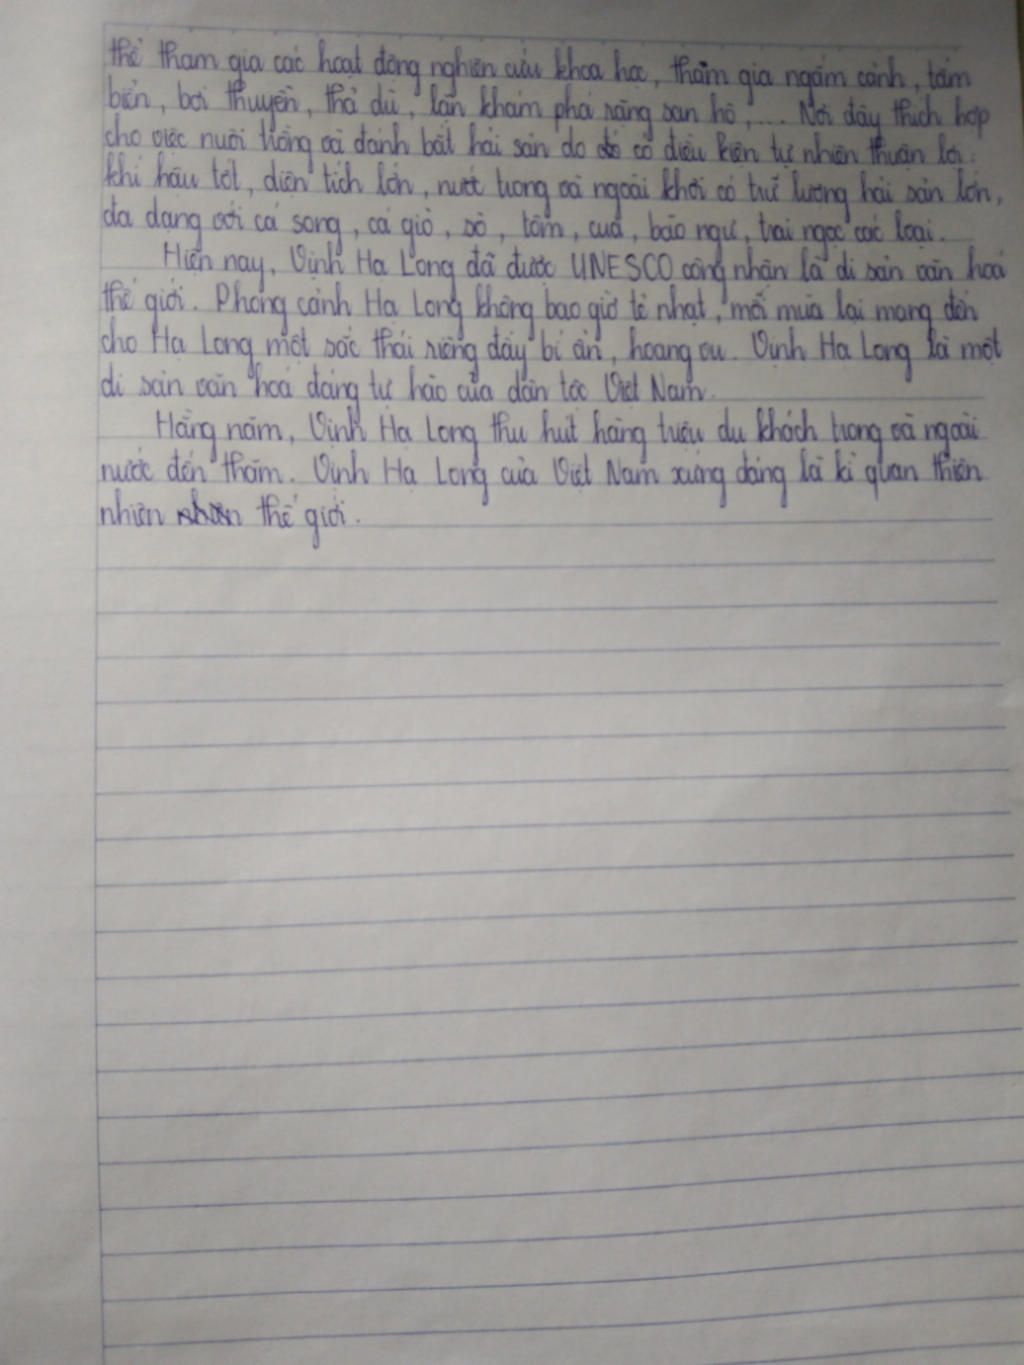 thể tham gia các hoạt động nghiên cứu khoa học, thăm gia ngắm cảnh, tắm
biển, bơi thuyền, thả dù, lặn khám phá rặng san hô,.... Nơi đây thích hợp
cho việc nuôi trồng và đánh bắt hải sản do có điều kiện tự nhiên thuận lợi:
khí hậu tốt, diện tích lớn, nước trong và ngoài khơi có trữ lượng hải sản lớn,
đa dạng với cá song, cá giò, sò, tôm, cua, bào ngư, trai ngọc các loại.
Hiện nay, Vịnh Hạ Long đã được UNESCO công nhận là di sản văn hoá
thế giới. Phong cảnh Hạ Long không bao giờ tẻ nhạt, mỗi mùa lại mang đến
cho Hạ Long một sắc thái riêng đầy bí ẩn, hoang vu. Vịnh Hạ Long là một
di sản văn hoá đáng tự hào của dân tộc Việt Nam.
Hằng năm, Vịnh Hạ Long thu hút hàng triệu du khách trong và ngoài
nước đến thăm. Vịnh Hạ Long của Việt Nam xứng đáng là kì quan thiên
nhiên thế giới.